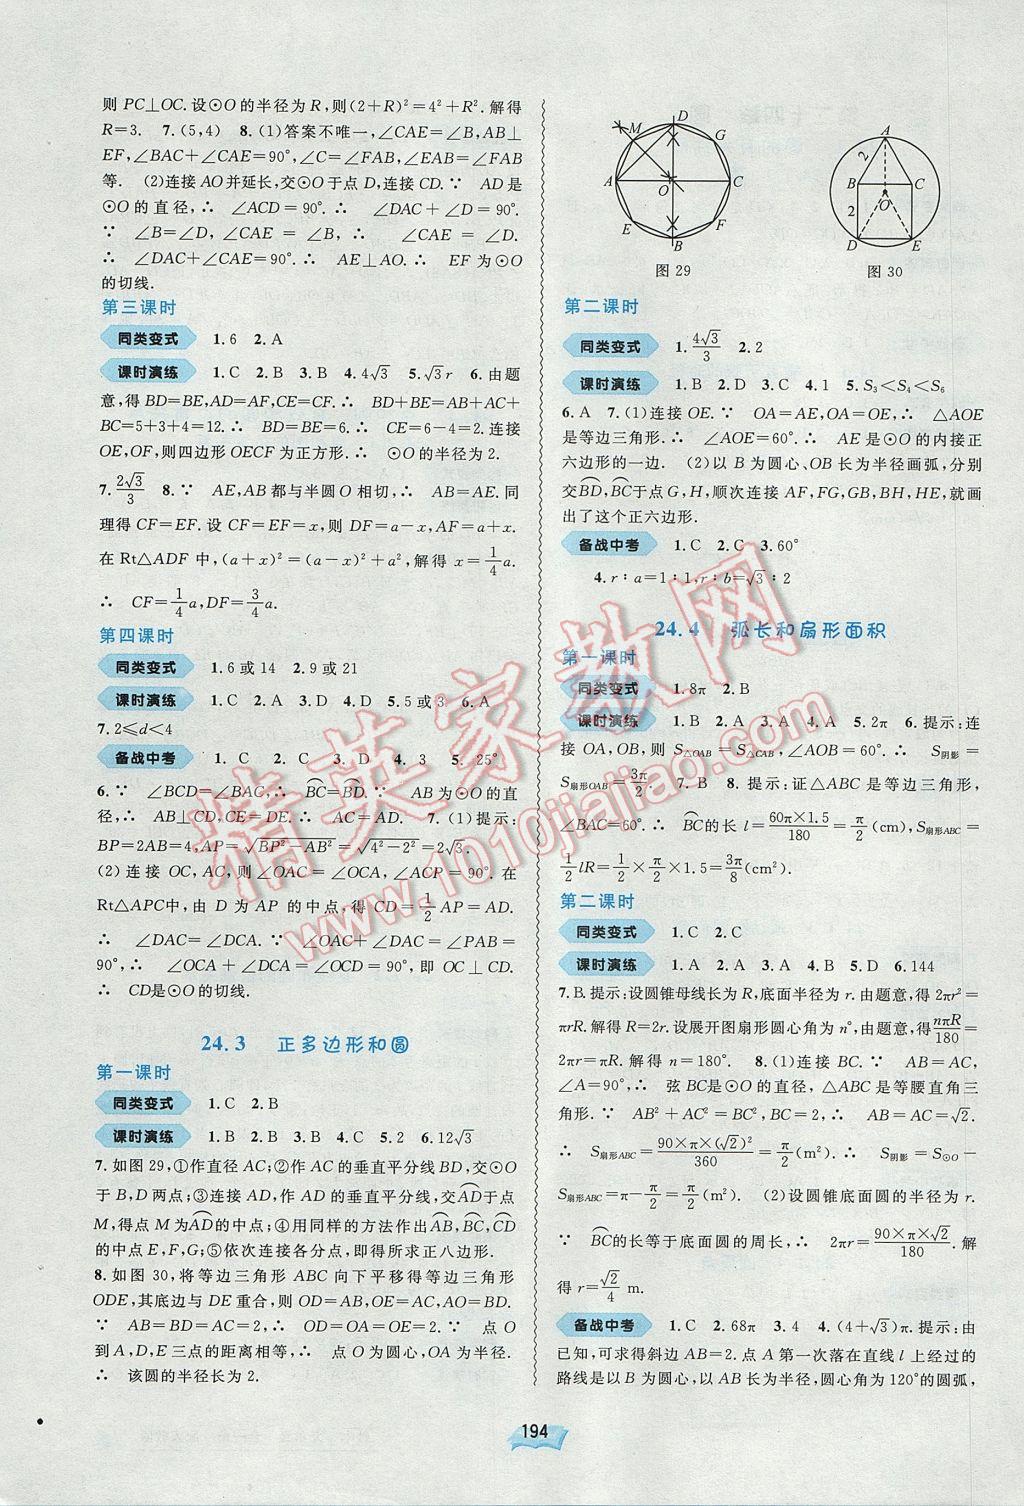 则 PC⊥OC. 设⊙O 的半径为 R, 则(2+R)²=4²+R². 解得
R=3.  7.(5,4)  8.(1)答案不唯一,∠CAE=∠B,AB⊥
EF,∠BAC+∠CAE=90°,∠C=∠FAB,∠EAB=∠FAB
等.  (2)连接 AO 并延长,交⊙O 于点 D,连接 CD.∵ AD 是
⊙O 的直径,∴ ∠ACD=90°.∴ ∠DAC+∠D=90°.
∵ ∠B=∠D,∠CAE=∠B.∴ ∠CAE=∠D.
∴ ∠DAC+∠CAE=90°.∴ AE⊥AO.∴ EF 为⊙O
的切线.
第三课时
同类变式 1.6 2.A
课时演练 1.C 2.B 3.B 4.4√3 5.√3r 6.由题
意,得 BD=BE,AD=AF,CE=CF.∴ BD+BE=AB+AC+
BC=5+3+4=12.∴ BD=BE=6.∴ CE=6-4=2.连接
OE,OF,则四边形 OECF 为正方形.∴ ⊙O 的半径为 2.
7.2√3/3 8.∵ AE,AB 都与半圆 O 相切,∴ AB=AE.同
理得 CF=EF.设 CF=EF=x,则 DF=a-x,AF=a+x.
在 Rt△ADF 中,(a+x)²=(a-x)²+a²,解得 x=1/4 a.
∴ CF=1/4 a,DF=3/4 a.
第四课时
同类变式 1.6 或 14 2.9 或 21
课时演练 1.C 2.A 3.D 4.D 5.5 或 3 6.A
7.2≤d<4
备战中考 1.C 2.C 3.D 4.3 5.25°
6.∵ ∠BCD=∠BAC,∴ BC=BD.∵ AB 为⊙O 的直
径,∴ AB⊥CD,CE=DE.∴ AC=AD. 7.(1)提示:
BP=2AB=4,AP=√BP²-AB²=√4²-2²=2√3.
(2)连接 OC,AC,则∠OAC=∠OCA,∠ACP=90°.在
Rt△APC中,由 D 为 AP 的中点,得 CD=1/2 AP=AD.
∴ ∠DAC=∠DCA.∵ ∠OAC+∠DAC=∠PAB=
90°,∴ ∠OCA+∠DCA=90°,即 OC⊥CD.
∴ CD是⊙O 的切线.
24.3 正多边形和圆
第一课时
同类变式 1.C 2.B
课时演练 1.B 2.B 3.B 4.C 5.2 6.12√3
7.如图 29,①作直径 AC;②作 AC 的垂直平分线 BD,交⊙O
于 B,D 两点;③连接 AD,作 AD 的垂直平分线,交AD于点
M,得点 M 为AD的中点;④用同样的方法作出AB,BC,CD
的中点 E,F,G;⑤依次连接各分点,即得所求正八边形.
8.如图 30,将等边三角形 ABC 向下平移得等边三角形
ODE,其底边与 DE 重合,则 OD=OE=AC,AO=BD.
∵ AB=BD=2,∴ OD=OA=OE=2.∵ 点 O
到 A,D,E 三点的距离相等,∴ 点 O 为圆心,OA 为半径.
∴ 该圆的半径长为 2.
D
M
G
A
O
C
E
F
B
图 29
A
2
B
C
O
2
D
E
图 30
第二课时
同类变式 1.4√3/3 2.2
课时演练 1.B 2.D 3.C 4.1 5.S₃<S₄<S₆
6.A 7.(1)连接 OE.∵ OA=AE,OA=OE,∴ △AOE
是等边三角形.∴ ∠AOE=60°.∴ AE 是⊙O 的内接正
六边形的一边. (2)以 B 为圆心、OB 长为半径画弧,分别
交BD,BC于点 G,H,顺次连接 AF,FG,GB,BH,HE,就画
出了这个正六边形.
备战中考 1.C 2.C 3.60°
4.r∶a=1∶1,r∶b=√3∶2
24.4 弧长和扇形面积
第一课时
同类变式 1.8π 2.B
课时演练 1.B 2.A 3.A 4.A 5.2π 6.提示:连
接 OA,OB,则 S△OAB=S△CAB,∠AOB=60°.∴ S阴影=
S扇形OAB=3π/2. 7.B 8.提示:证△ABC 是等边三角形,
∠BAC=60°.∴ BC的长 l=60π×1.5/180=π/2(cm),S扇形ABC=
1/2 lR=1/2×π/2×1.5=3π/8(cm²).
第二课时
同类变式 1.C 2.C
课时演练 1.A 2.A 3.A 4.B 5.D 6.144
7.B.提示:设圆锥母线长为 R,底面半径为 r.由题意,得 2πr²=
πrR.解得 R=2r.设展开图扇形圆心角为 n°,由题意,得 nπR/180=
2πr=πR.解得 n=180°. 8.(1)连接 BC.∵ AB=AC,
∠A=90°,∴ 弦 BC 是⊙O 的直径,△ABC 是等腰直角三
角形.∵ AB²+AC²=BC²,BC=2,∴ AB=AC=√2.
∴ S扇形ABC=90×π×(√2)²/360=π/2(m²).∴ S阴影=S⊙O-
S扇形ABC=π-π/2=π/2(m²). (2)设圆锥底面圆的半径为 r.
∵ BC的长等于底面圆的周长,∴ 2πr=90×π×√2/180.解
得 r=√2/4 m.
备战中考 1.C 2.68π 3.4 4.(4+√3)π.提示:由
已知,可求得斜边 AB=2.点 A 第一次落在直线 l 上经过的
路线是以 B 为圆心,以 AB 长为半径,圆心角为120°的圆弧,
194
精英家教网
www.1010jiajiao.com